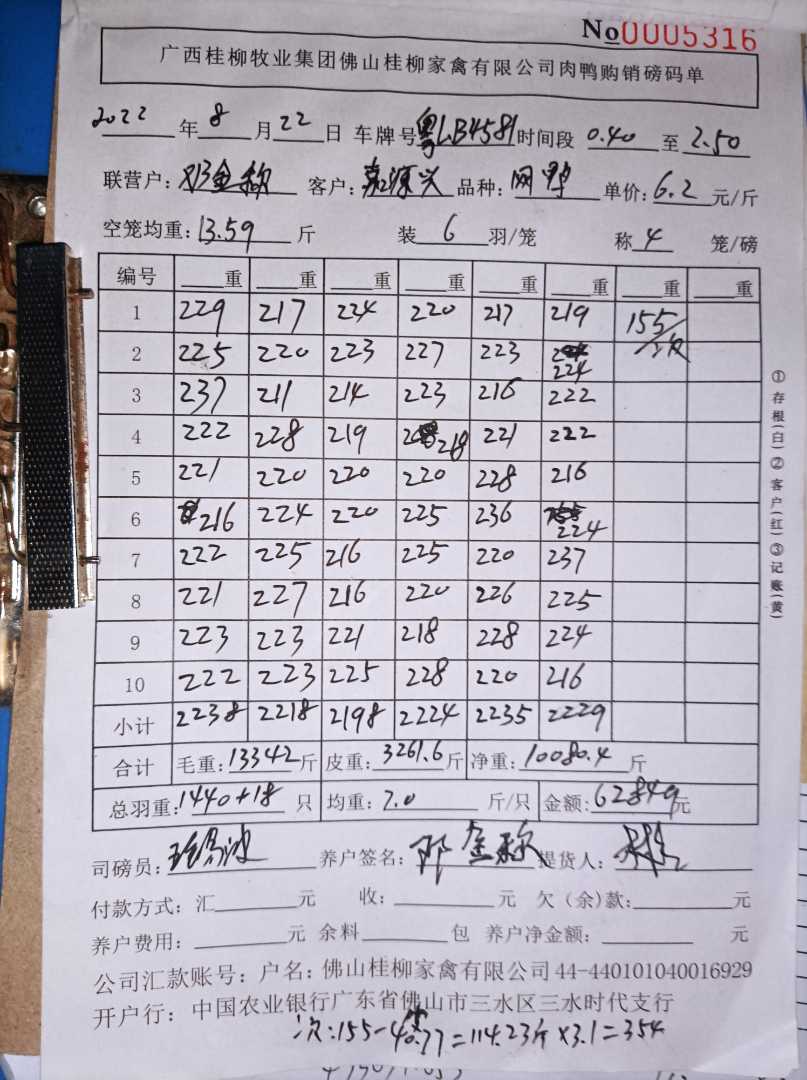 No 0005316
广西桂柳牧业集团佛山桂柳家禽有限公司肉鸭购销磅码单
2022年8月22日 车牌号粤LB4581时间段 0.40 至 2.50
联营户:邓金称 客户:嘉源兴 品种:网鸭 单价:6.2元/斤
空笼均重:13.59斤 装6羽/笼 称4笼/磅
编号 重 重 重 重 重 重 重 重
1 229 217 224 220 217 219 155/次
2 225 220 223 227 223 224
3 237 211 214 223 216 222
4 222 228 219 218 221 222
5 221 220 220 220 228 216
6 216 224 220 225 236 224
7 222 225 216 225 220 237
8 221 227 216 220 226 225
9 223 223 221 218 228 224
10 222 223 225 228 220 216
小计 2238 2218 2198 2224 2235 2229
合计 毛重:13342斤 皮重:3261.6斤 净重:10080.4斤
总羽重:1440+18只 均重:7.0斤/只 金额:62849元
司磅员: 养户签名:邓金称 提货人:
付款方式:汇元 收:元 欠(余)款:元
养户费用:元 余料包 养户净金额:元
公司汇款账号:户名:佛山桂柳家禽有限公司44-440101040016929
开户行:中国农业银行广东省佛山市三水区三水时代支行
次:155-40.77=114.23斤×3.1=354
①存根(白)②客户(红)③记账(黄)